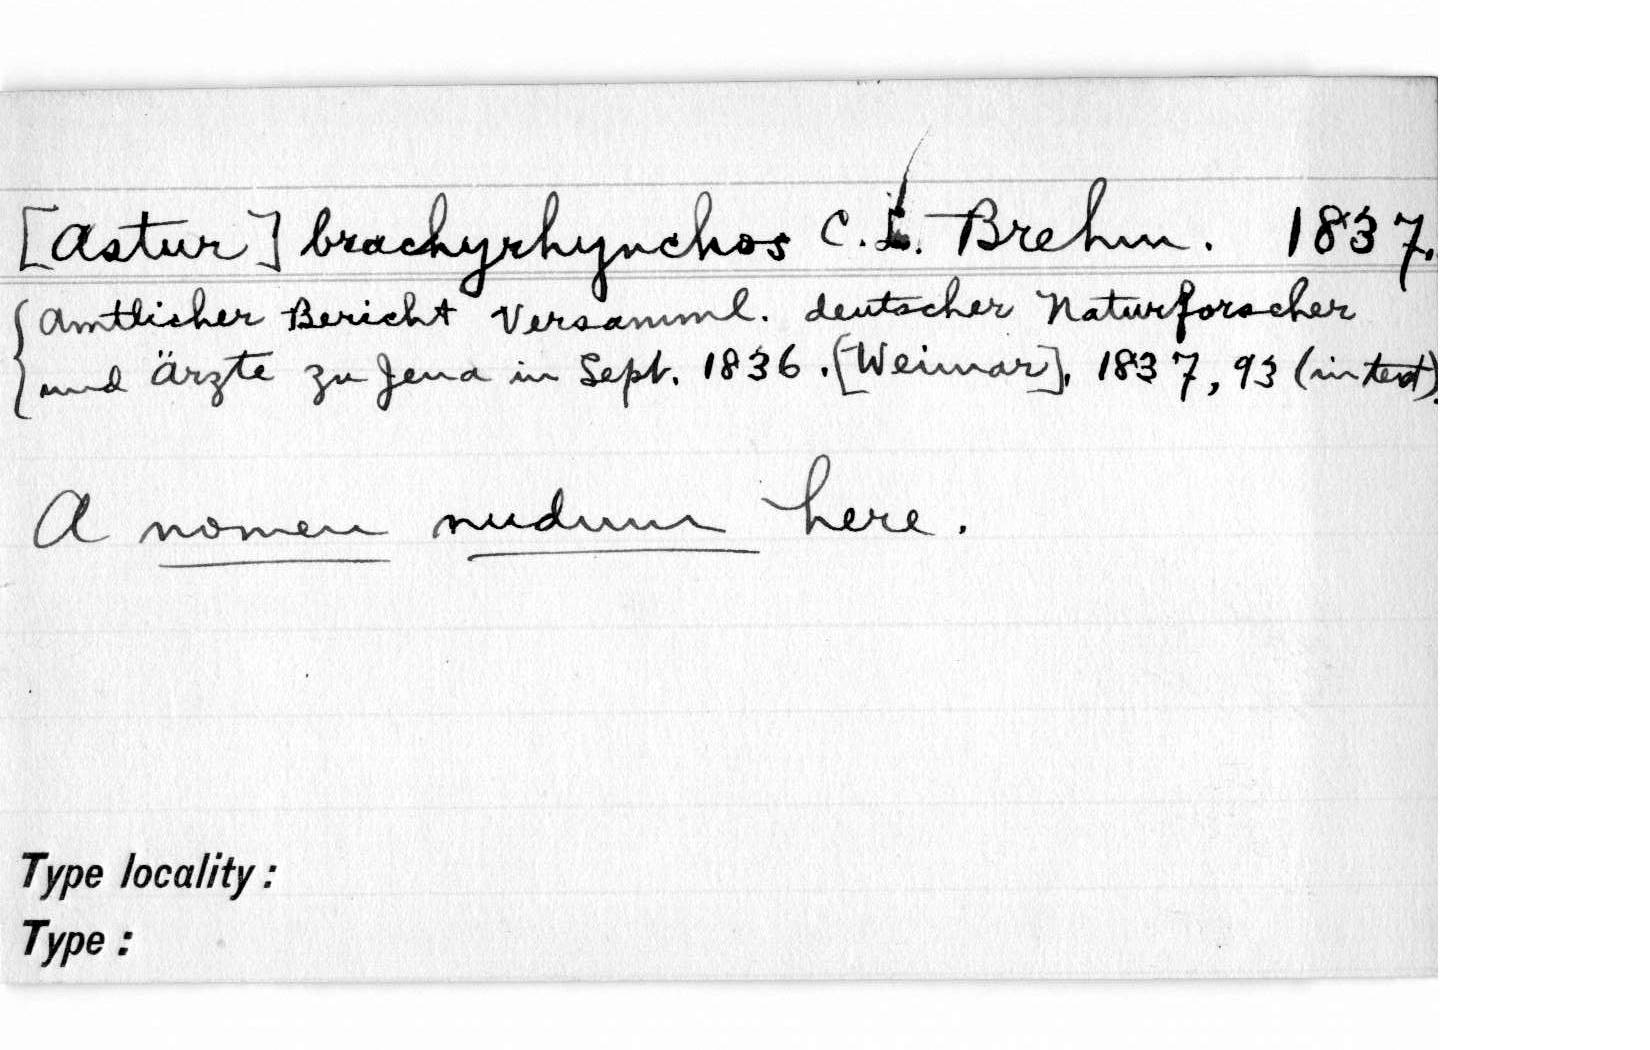 [Astur] brachyrhynchos C. L. Brehm. 1837.
{Amtlicher Bericht Versamml. deutscher Naturforscher
und Ärzte zu Jena in Sept. 1836. [Weimar], 1837, 93 (in text).
A nomen nudum here.
Type locality:
Type: